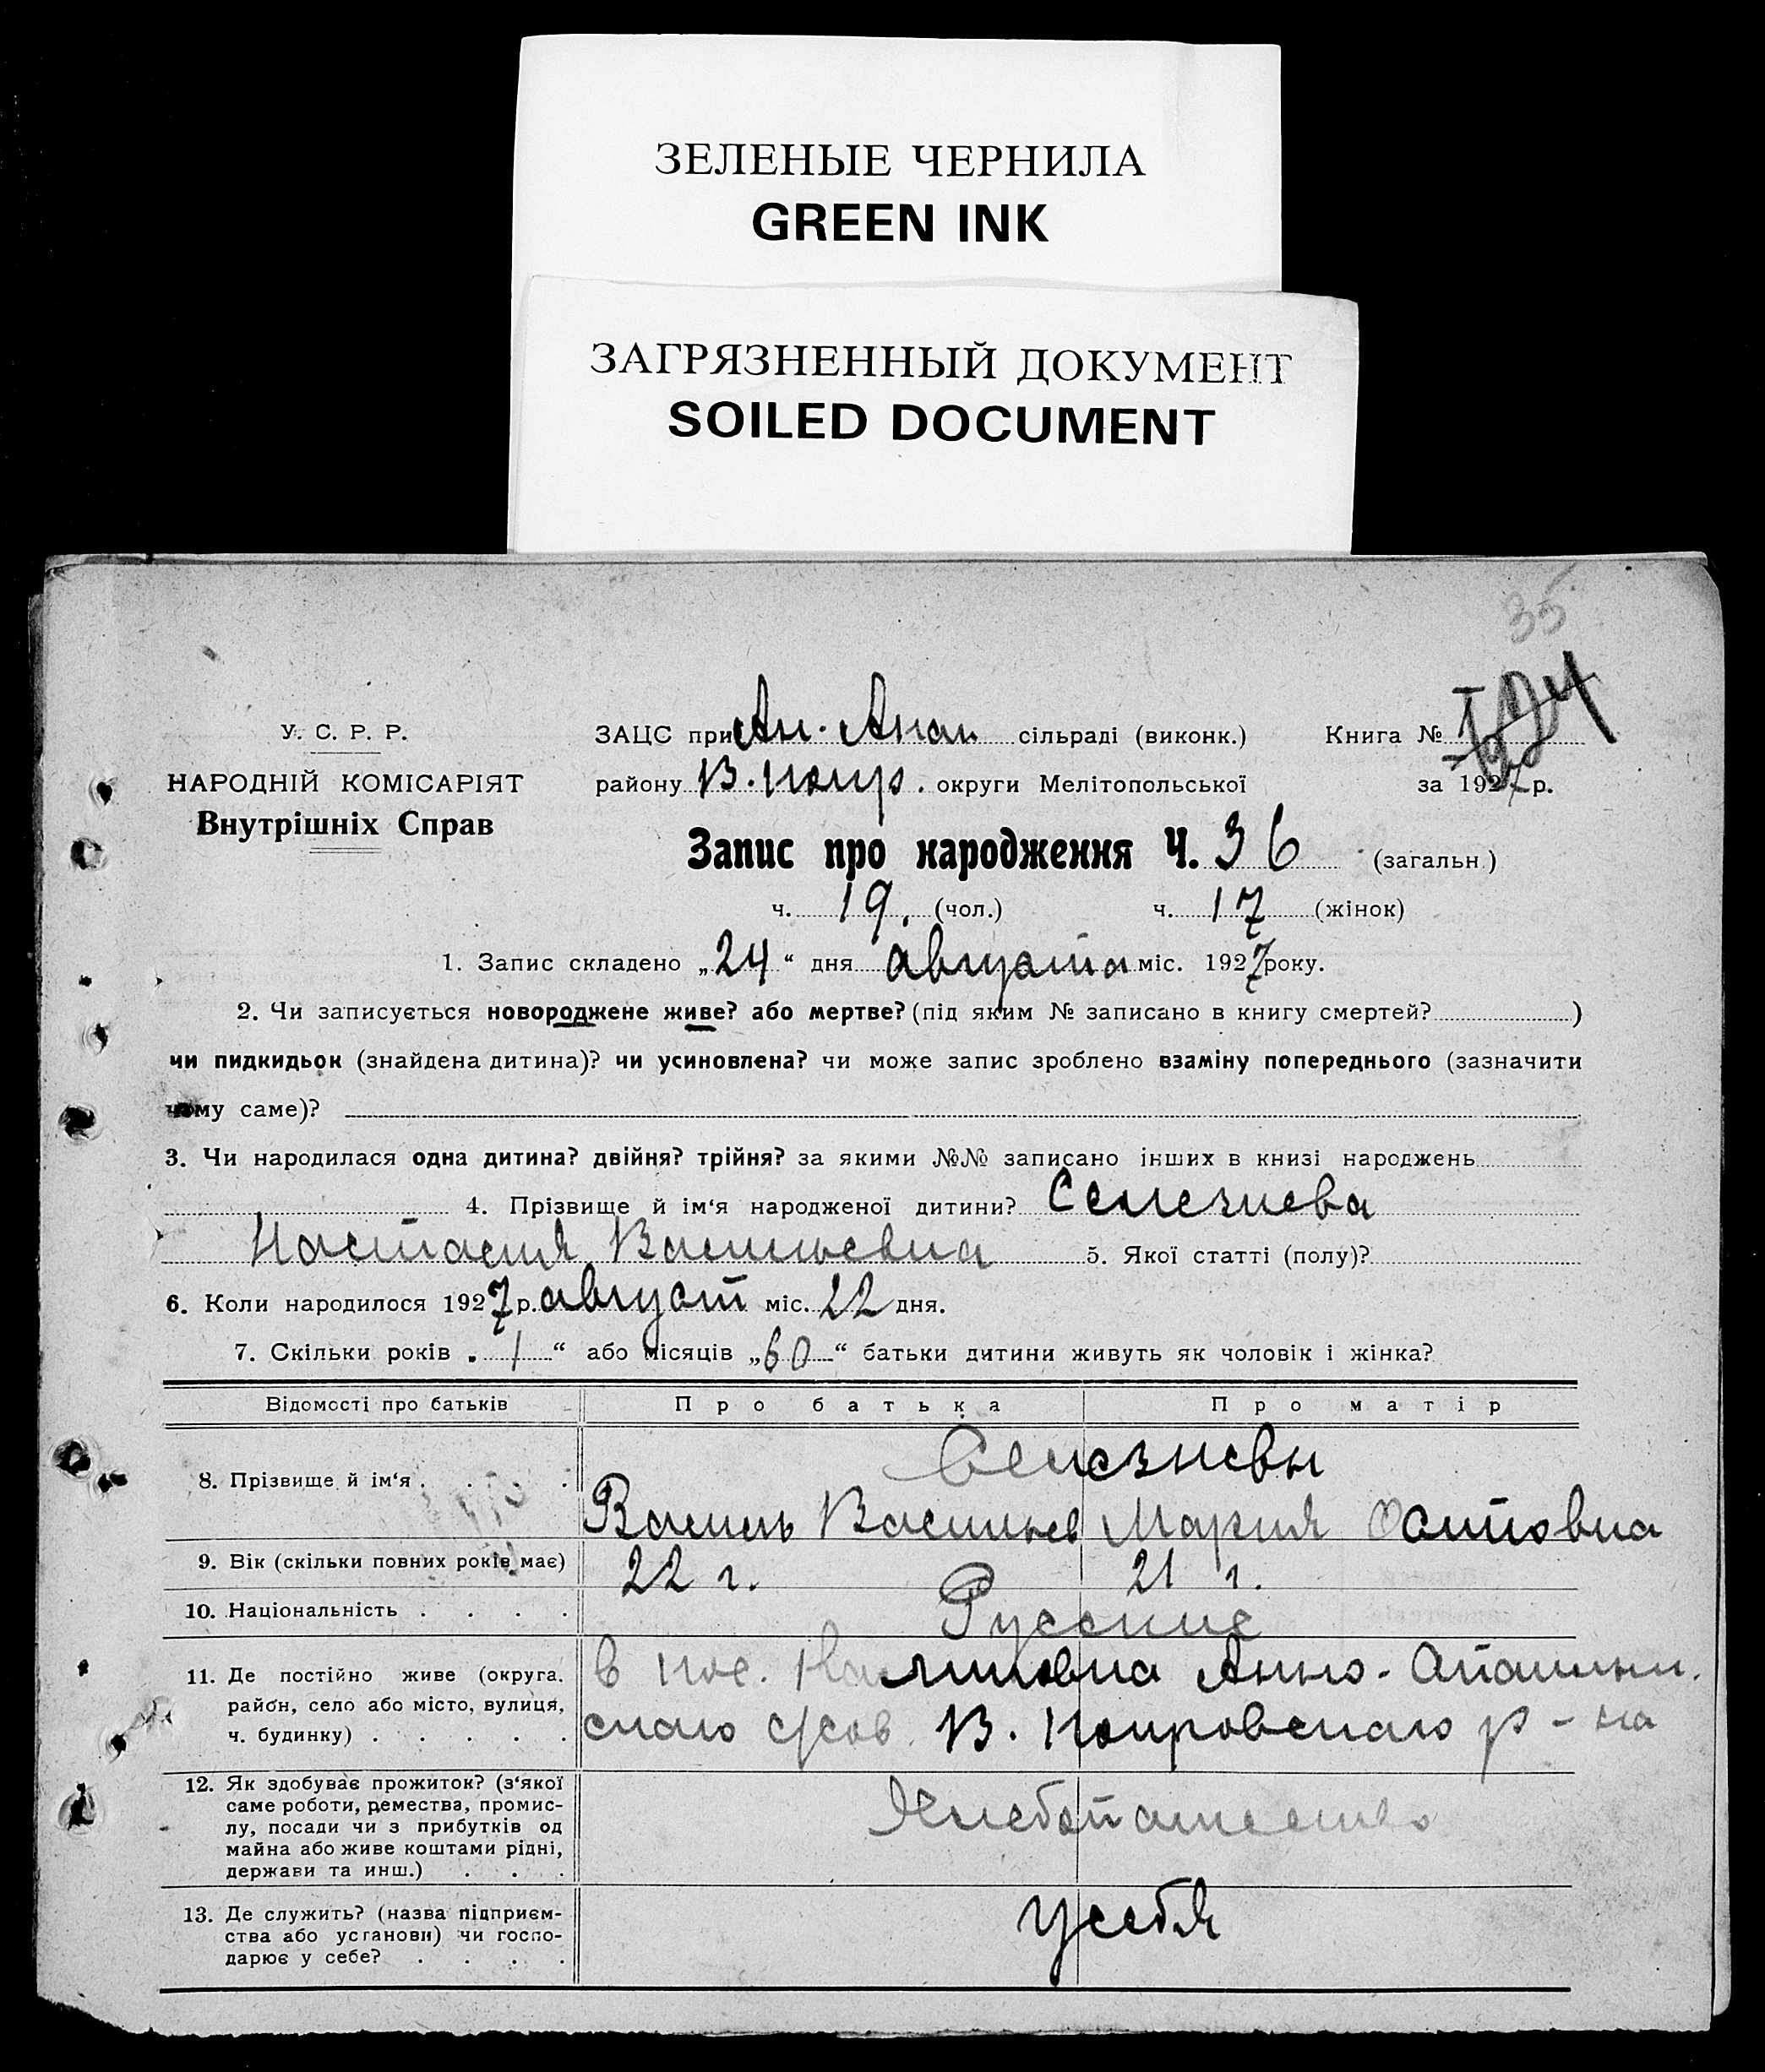 ЗЕЛЕНЫЕ ЧЕРНИЛА
GREEN INK
ЗАГРЯЗНЕННЫЙ ДОКУМЕНТ
SOILED DOCUMENT
35
У. С. Р. Р.
НАРОДНІЙ КОМІСАРІЯТ
Внутрішніх Справ
ЗАЦС при Ан. Апан сільраді (виконк.) Книга №
району В. Покр. округи Мелітопольської за 1927 р.
Запис про народження Ч. 36 (загальн.)
ч. 19. (чол.) ч. 17 (жінок)
1. Запис складено „24“ дня августа міс. 1927 року.
2. Чи записується новороджене живе? або мертве? (під яким № записано в книгу смертей? )
чи пидкидьок (знайдена дитина)? чи усиновлена? чи може запис зроблено взаміну попереднього (зазначити
чому саме)?
3. Чи народилася одна дитина? двійня? трійня? за якими №№ записано інших в книзі народжень
4. Прізвище й ім‘я народженої дитини? Селезнева
Настасия Васильевна 5. Якої статті (полу)?
6. Коли народилося 1927 р. август міс. 22 дня.
7. Скільки років „ 1 “ або місяців „60“ батьки дитини живуть як чоловік і жінка?
Відомості про батьків Про батька Про матір
8. Прізвище й ім‘я . . . . Селезневы
Василь Васильев Мария Осиповна
9. Вік (скільки повних років має) 22 г. 21 г.
10. Національність . . . . Русские
11. Де постійно живе (округа, район, село або місто, вулиця, ч. будинку) . . . . .
в пос. Анно-
В. Покровскаго р-на
12. Як здобуває прожиток? (з‘якої саме роботи, ремества, промис-
лу, посади чи з прибутків од
майна або живе коштами рідні,
держави та инш.) . . .
Хлебопашество
13. Де служить? (назва підприєм-
ства або установи) чи госпо-
дарює у себе? . . . .
у себя